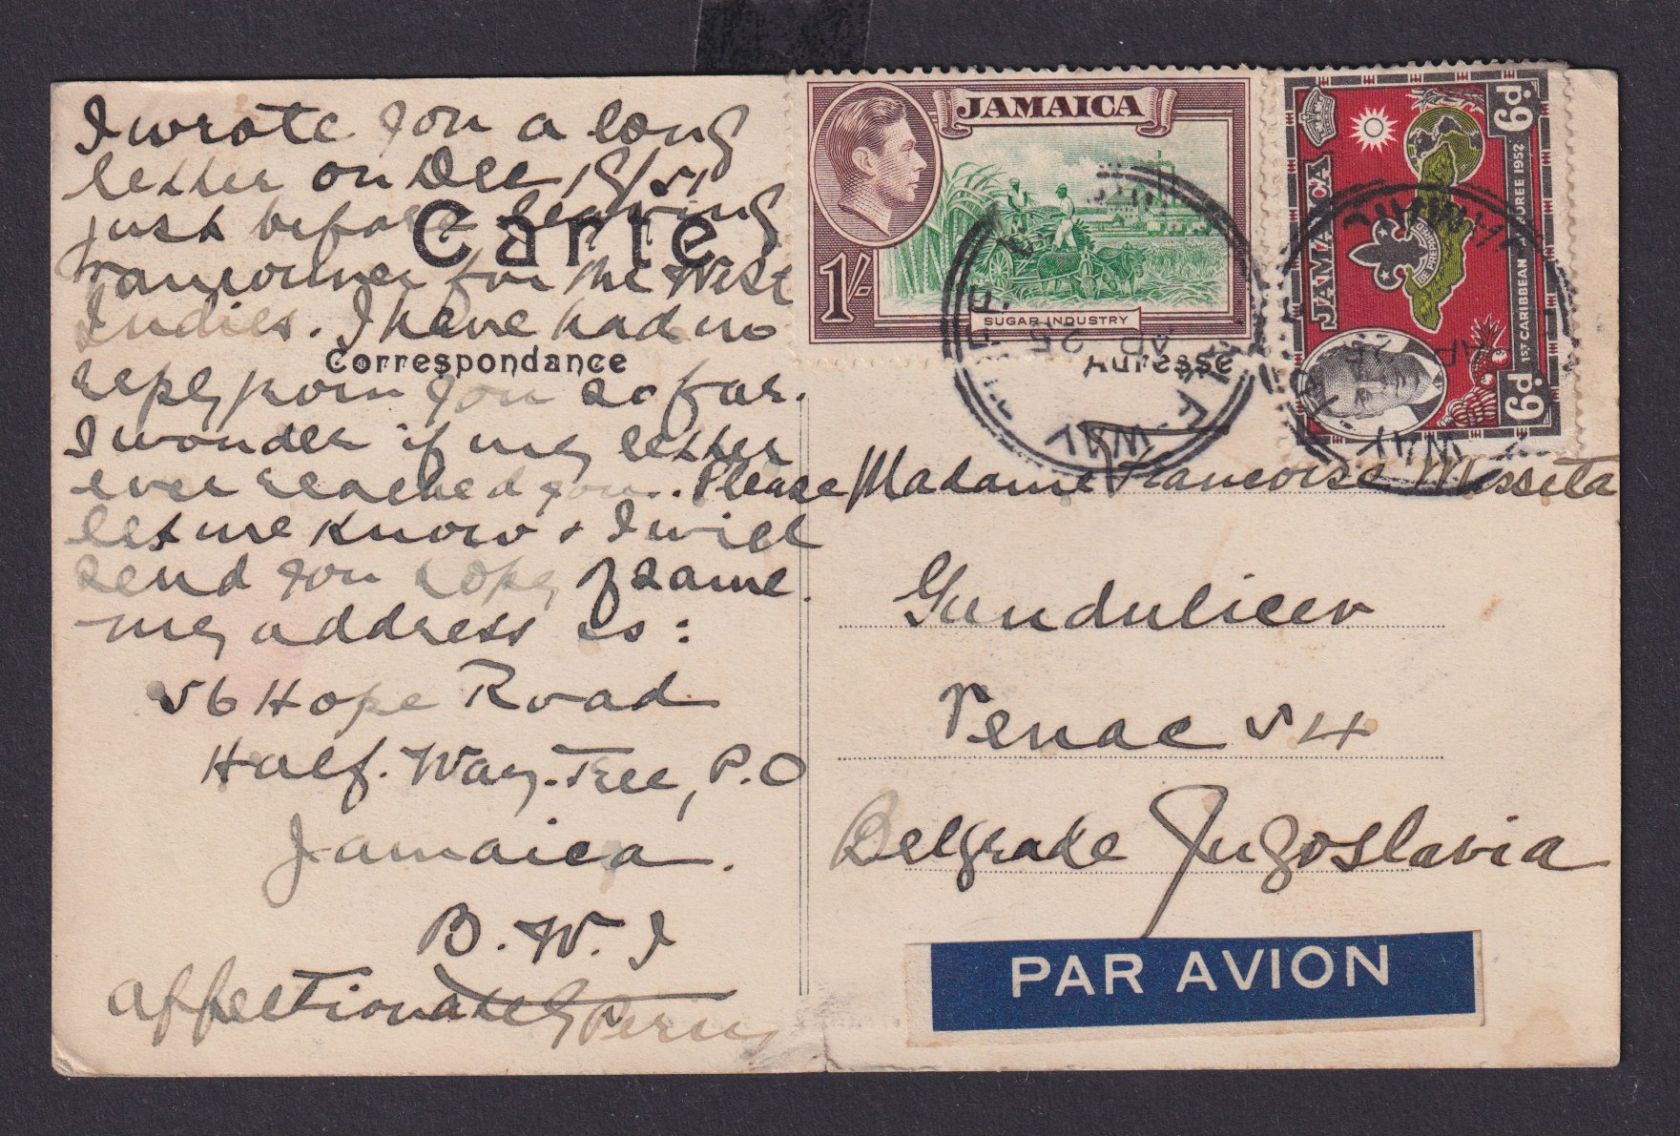 I wrote you a long
letter on Dec 18/51
just before leaving
Vancouver for the West
Indies. I have had no
reply from you so far.
I wonder if my letter
ever reached you. Please
let me know & I will
send you copy of same.
my address is:
56 Hope Road
Half-Way-Tree, P.O
Jamaica.
B.W.I
Affectionately Percy
Carte
Correspondance
Adresse
JAMAICA
1/-
SUGAR INDUSTRY
JAMAICA
6d.
6d.
1ST CARIBBEAN JAMBOREE 1952
BE PREPARED
Madame Francoise Musseta
Gundulicev
Venac 54
Belgrade Jugoslavia
PAR AVION